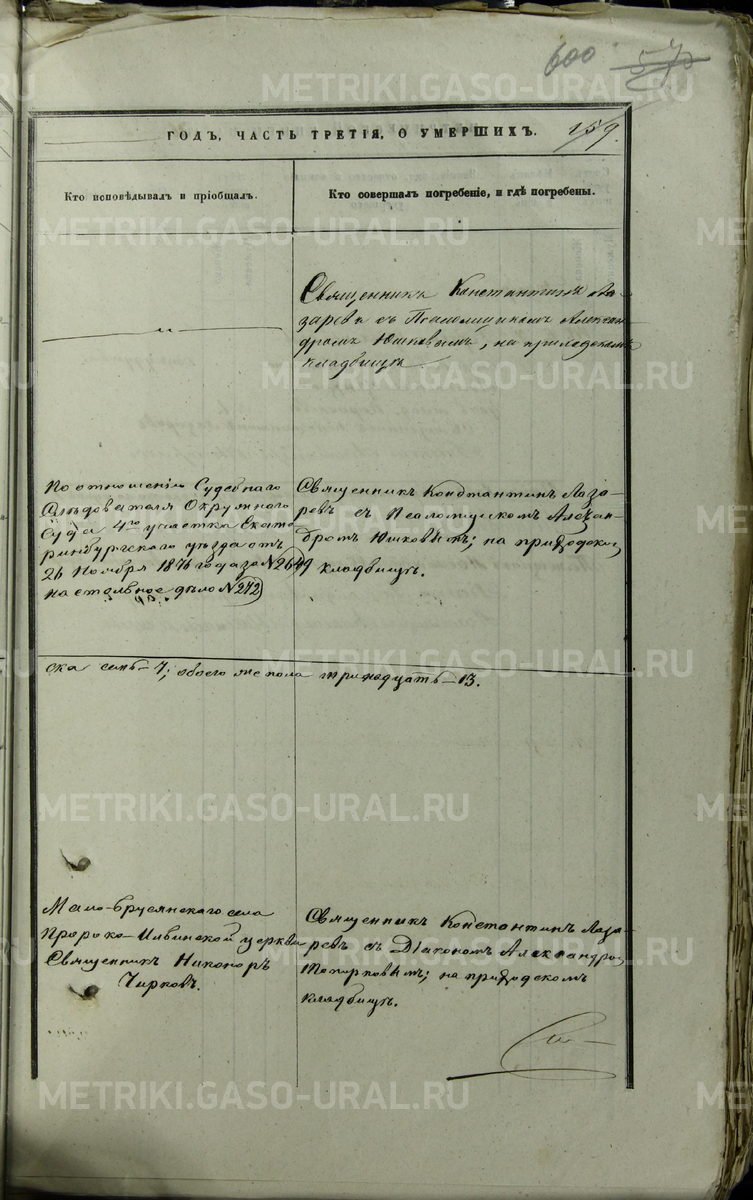 600 57
ГОДЪ, ЧАСТЬ ТРЕТІЯ, О УМЕРШИХЪ. 159.
Кто исповѣдывалъ и пріобщалъ.
Кто совершалъ погребеніе, и гдѣ погребены.
— „ —
Священникъ Константинъ Ла-
заревъ съ Псаломщикомъ Алексан-
дромъ Юшковымъ, на приходскомъ
кладбищѣ.
По отношенію Судебнаго
Слѣдователя Окружнаго
Суда 4го участка Екате
ринбургскаго уѣзда отъ
26 Ноября 1876 года за № 2649
настольное дѣло № 272
Священникъ Константинъ Лаза-
ревъ съ Псаломщикомъ Алексан-
дромъ Юшковымъ; на приходском
кладбищѣ.
ска семь – 7; обоего же пола тринадцать – 13.
Мало-Брусянскаго села
Пророко-Ильинской церкви
Священникъ Никаноръ
Чирковъ.
Священникъ Константинъ Лаза-
ревъ съ Діакономъ Александром
Топорковымъ; на приходскомъ
кладбищѣ.
METRIKI.GASO-URAL.RU